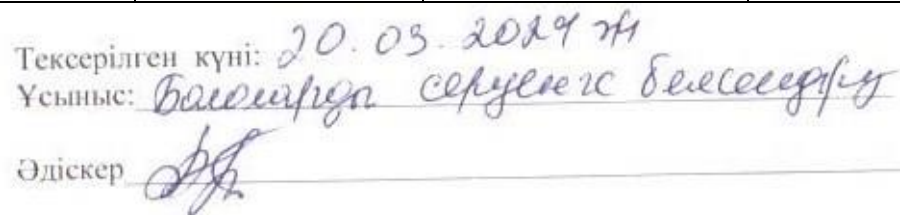 Тексерілген күні: 20. 03. 2024 ж
Ұсыныс: Балаларды серуенге белсендіру
Әдіскер